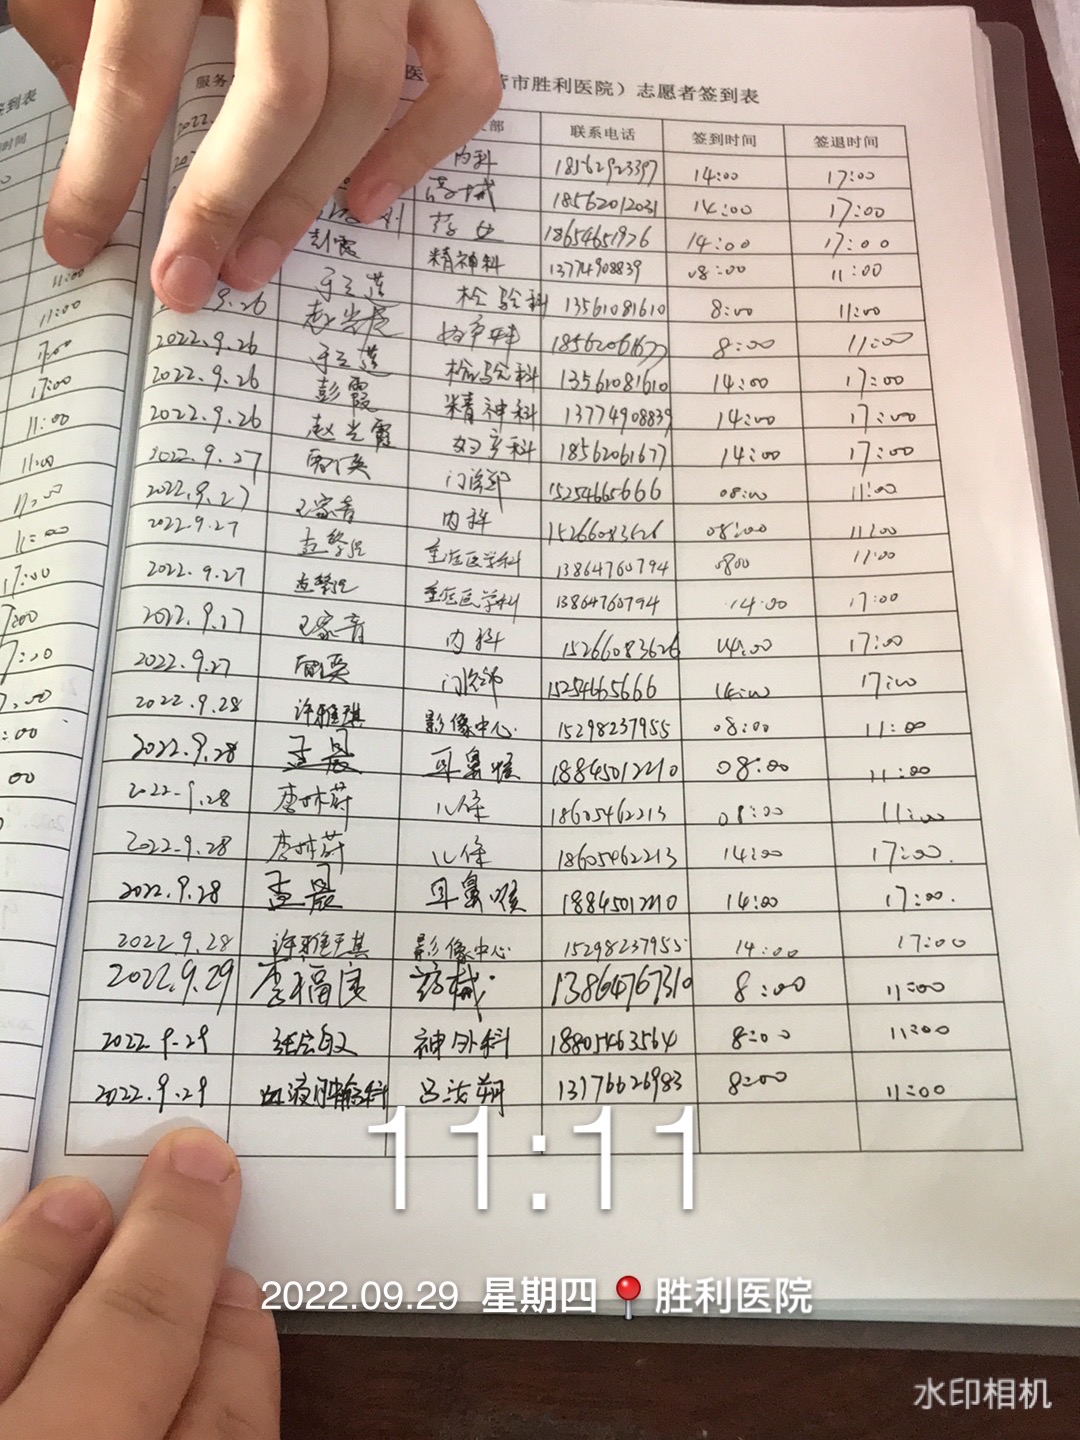 签到表
时间
服务 医 市胜利医院）志愿者签到表
部 联系电话 签到时间 签退时间
2022. 内科 18562923397 14:00 17:00
18562012031 14:00 17:00
18654651926 14:00 17:00
彭霞 精神科 13774908839 08:00 11:00
9.26 于立莲 检验科 13561081610 8:00 11:00
2022.9.26 赵兰霞 妇产科 18562061677 8:00 11:00
2022.9.26 于立莲 检验科 13561081610 14:00 17:00
2022.9.26 彭霞 精神科 13774908839 14:00 17:00
2022.9.27 赵兰霞 妇产科 18562061677 14:00 17:00
2022.9.27 门诊部 15254665666 08:00 11:00
2022.9.27 王家音 内科 15266083626 08:00 11:00
2022.9.27 重症医学科 13864760794 0800 11:00
重症医学科 13864760794 14:00 17:00
2022.9.27 王家音 内科 15266083626 14:00 17:00
2022.9.27 门诊部 15254665666 14:00 17:00
2022.9.28 许雅琪 影像中心 15298237955 08:00 11:00
2022.9.28 孟晨 耳鼻喉 18845012210 08:00 11:00
2022.9.28 李林蔚 儿保 18605462213 08:00 11:00
2022.9.28 李林蔚 儿保 18605462213 14:00 17:00.
2022.9.28 孟晨 耳鼻喉 18845012210 14:00 17:00.
2022.9.28 许雅琪 影像中心 15298237955 14:00 17:00
2022.9.29 李福宾 药械 13864767310 8:00 11:00
2022.9.29 神外科 18805463564 8:00 11:00
2022.9.29 血液肿瘤科 吕浩朔 13176626983 8:00 11:00
11:00
11:00
17:00
17:00
11:00
11:00
11:00
11:00
17:00
7:00
7:00
7:00
:00
00
11:11
2022.09.29 星期四 胜利医院
水印相机